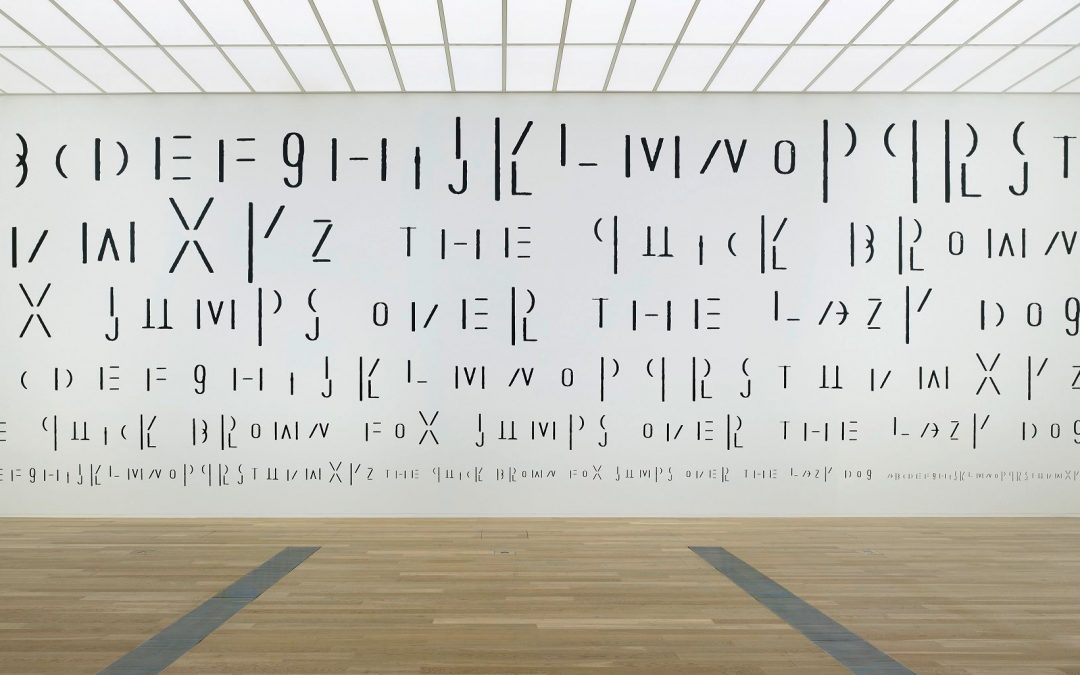 BCDEFgHiJKLMNOPQRST
VWXYZ THE QUiCK BROWN
X JUMPS OVER THE LAZY DOg
CDEFgHiJKLMNOPQRSTUVWXYZ
E QUiCK BROWN FOX JUMPS OVER THE LAZY DOg
EFgHiJKLMNOPQRSTUVWXYZ THE QUiCK BROWN FOX JUMPS OVER THE LAZY DOg ABCDEFgHiJKLMNOPQRSTUVWX